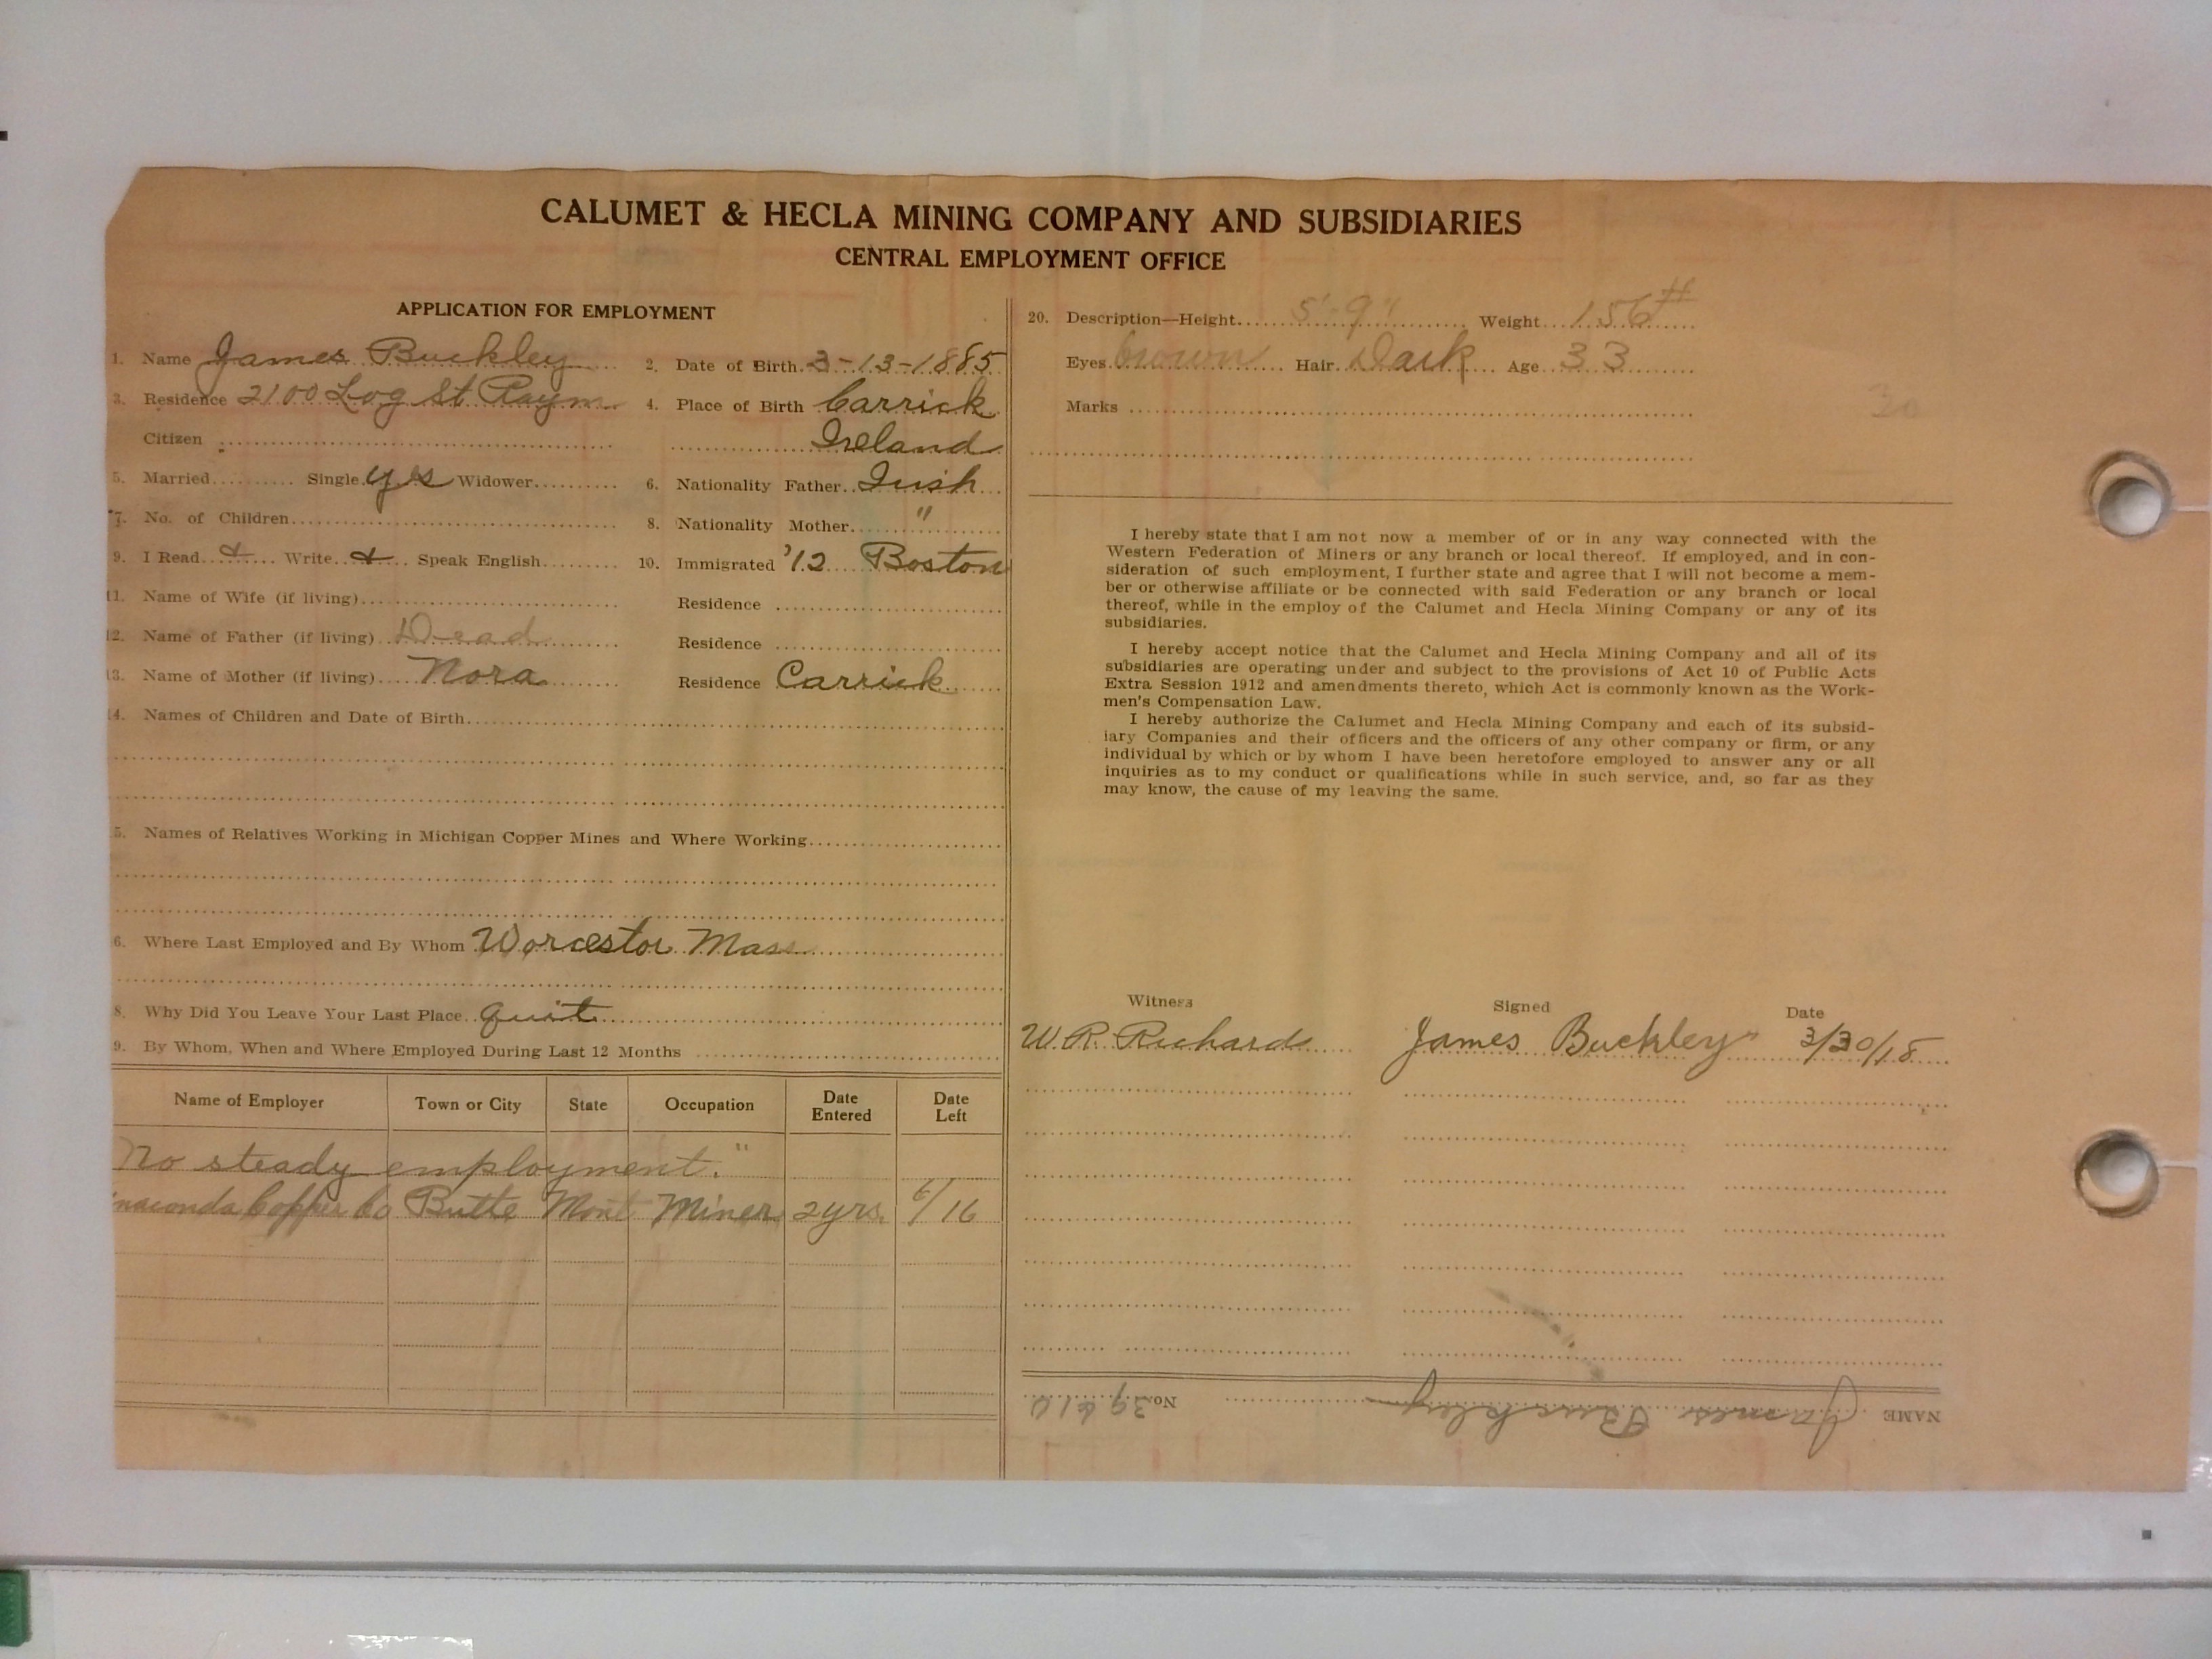 CALUMET & HECLA MINING COMPANY AND SUBSIDIARIES
CENTRAL EMPLOYMENT OFFICE
APPLICATION FOR EMPLOYMENT
1. Name James Buckley 2. Date of Birth 3-13-1885
3. Residence 2100 Log St Raym 4. Place of Birth Carrick
Citizen Ireland
5. Married Single yes Widower 6. Nationality Father Irish
7. No. of Children 8. Nationality Mother "
9. I Read & Write & Speak English 10. Immigrated '12 Boston
11. Name of Wife (if living) Residence
12. Name of Father (if living) Dead Residence
13. Name of Mother (if living) Nora Residence Carrick
14. Names of Children and Date of Birth
5. Names of Relatives Working in Michigan Copper Mines and Where Working
6. Where Last Employed and By Whom Worcestor Mass
8. Why Did You Leave Your Last Place quit
9. By Whom, When and Where Employed During Last 12 Months
Name of Employer Town or City State Occupation Date Entered Date Left
No steady employment."
naconda Copper Co Butte Mont Miner 2yrs. 6/16
20. Description—Height 5'-9" Weight 156#
Eyes brown Hair Dark Age 33
Marks
30
I hereby state that I am not now a member of or in any way connected with the
Western Federation of Miners or any branch or local thereof. If employed, and in con-
sideration of such employment, I further state and agree that I will not become a mem-
ber or otherwise affiliate or be connected with said Federation or any branch or local
thereof, while in the employ of the Calumet and Hecla Mining Company or any of its
subsidiaries.
I hereby accept notice that the Calumet and Hecla Mining Company and all of its
subsidiaries are operating under and subject to the provisions of Act 10 of Public Acts
Extra Session 1912 and amendments thereto, which Act is commonly known as the Work-
men's Compensation Law.
I hereby authorize the Calumet and Hecla Mining Company and each of its subsid-
iary Companies and their officers and the officers of any other company or firm, or any
individual by which or by whom I have been heretofore employed to answer any or all
inquiries as to my conduct or qualifications while in such service, and, so far as they
may know, the cause of my leaving the same.
Witness Signed Date
W.R. Richards James Buckley 3/30/18
NAME James Buckley No. 39610